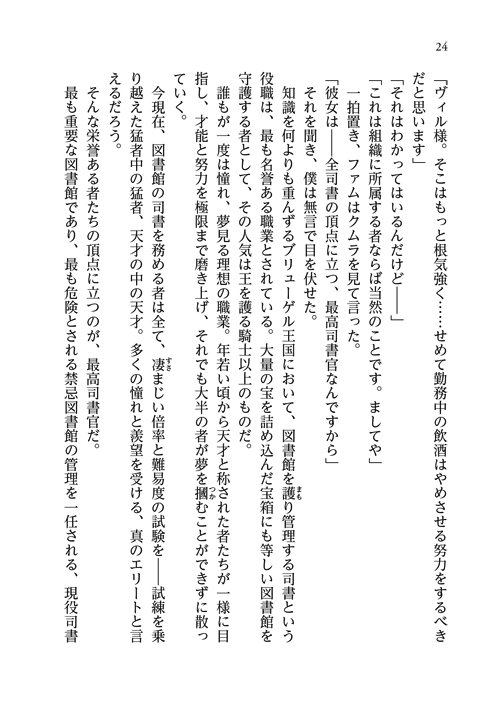 24
「ヴィル様。そこはもっと根気強く……せめて勤務中の飲酒はやめさせる努力をするべき
だと思います」
「それはわかってはいるんだけど――」
「これは組織に所属する者ならば当然のことです。ましてや」
一拍置き、ファムはクムラを見て言った。
「彼女は――全司書の頂点に立つ、最高司書官なんですから」
それを聞き、僕は無言で目を伏せた。
知識を何よりも重んずるブリューゲル王国において、図書館を護り管理する司書という
役職は、最も名誉ある職業とされている。大量の宝を詰め込んだ宝箱にも等しい図書館を
守護する者として、その人気は王を護る騎士以上のものだ。
誰もが一度は憧れ、夢見る理想の職業。年若い頃から天才と称された者たちが一様に目
指し、才能と努力を極限まで磨き上げ、それでも大半の者が夢を摑むことができずに散っ
ていく。
今現在、図書館の司書を務める者は全て、凄まじい倍率と難易度の試験を――試練を乗
り越えた猛者中の猛者、天才の中の天才。多くの憧れと羨望を受ける、真のエリートと言
えるだろう。
そんな栄誉ある者たちの頂点に立つのが、最高司書官だ。
最も重要な図書館であり、最も危険とされる禁忌図書館の管理を一任される、現役司書